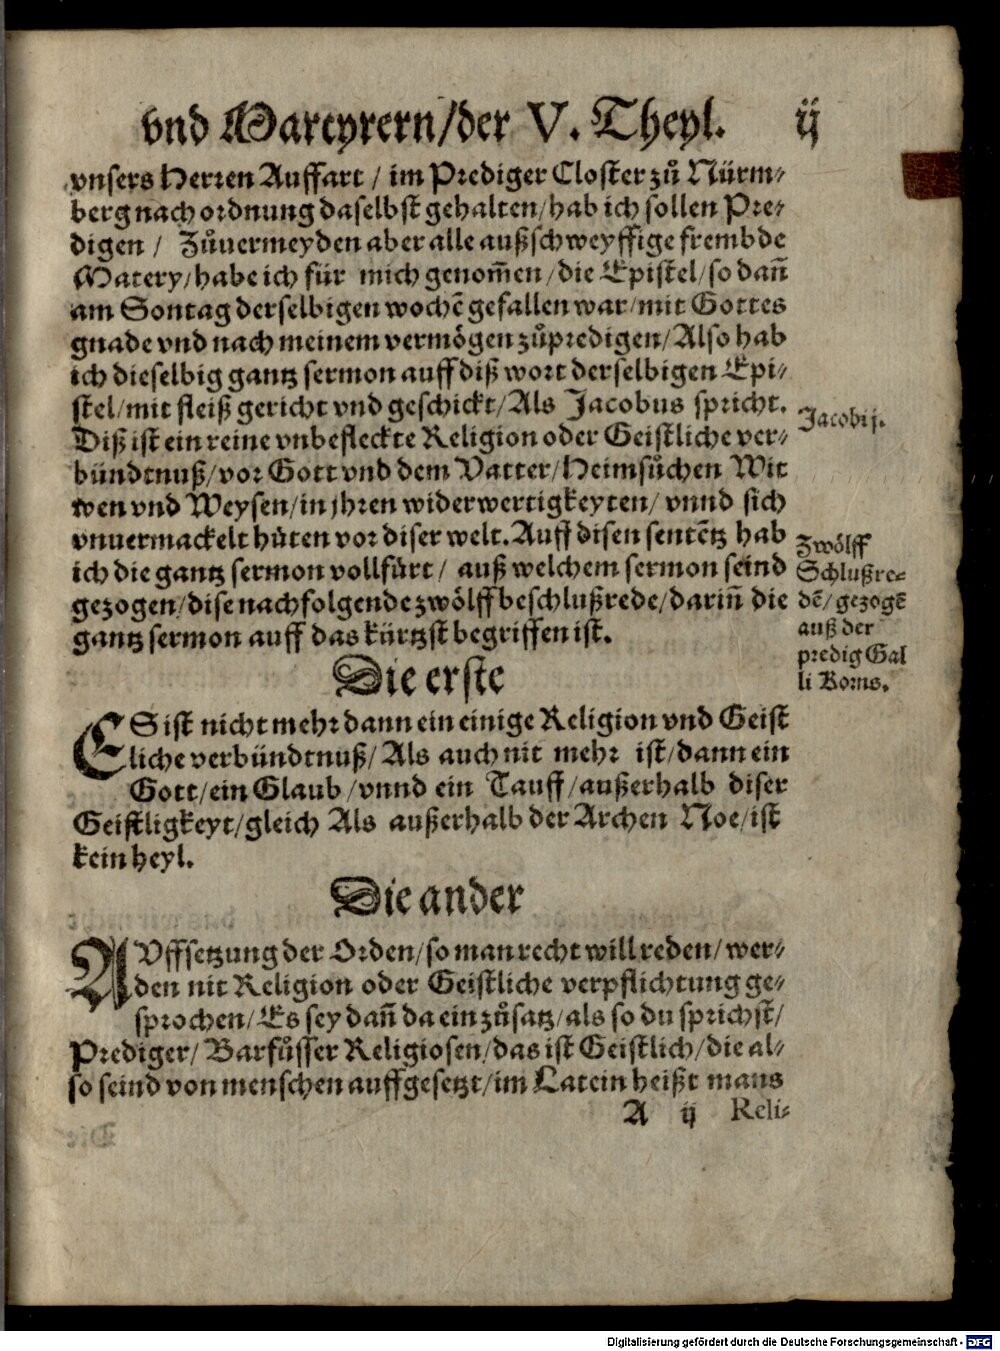 vnd Martyrern/der V. Theyl. ij
vnsers Herren Auffart / im Prediger Closter zů Nürm⸗
berg nach ordnung daselbst gehalten/hab ich sollen Pre⸗
digen / Zůuermeyden aber alle außschweyffige frembde
Matery/habe ich für mich genom̃en/die Epistel/so dañ
am Sontag derselbigen wochẽ gefallen war/mit Gottes
gnade vnd nach meinem vermögen zůpredigen/Also hab
ich dieselbig gantz sermon auff diß wort derselbigen Epi⸗
stel/mit fleiß gericht vnd geschickt/Als Jacobus spricht.
Diß ist ein reine vnbefleckte Religion oder Geistliche ver⸗
bündtnuß/vor Gott vnd dem Vatter/Heimsůchen Wit
wen vnd Weysen/in jhren widerwertigkeyten/vnnd sich
vnuermackelt hůten vor diser welt.Auff disen sentẽtz hab
ich die gantz sermon vollfürt/ auß welchem sermon seind
gezogen/dise nachfolgende zwölff beschlußrede/dariñ die
gantz sermon auff das kürtzst begriffen ist.
Jacobi j.
Zwölff
Schlußre⸗
dẽ/gezogẽ
auß der
predig Gal
li Korns.
Die erste
ES ist nicht mehr dann ein einige Religion vnd Geist
liche verbündtnuß/Als auch nit mehr ist/dann ein
Gott/ein Glaub/vnnd ein Tauff/außerhalb diser
Geistligkeyt/gleich Als außerhalb der Archen Noe/ist
kein heyl.
Die ander
AVffsetzung der Orden/so man recht will reden/wer⸗
den nit Religion oder Geistliche verpflichtung ge⸗
sprochen/Es sey dañ da ein zůsatz/als so du sprichst/
Prediger/Barfůsser Religiosen/das ist Geistlich/die al⸗
so seind von menschen auffgesetzt/im Latein heißt mans
A ij Reli⸗
Digitalisierung gefördert durch die Deutsche Forschungsgemeinschaft - DFG